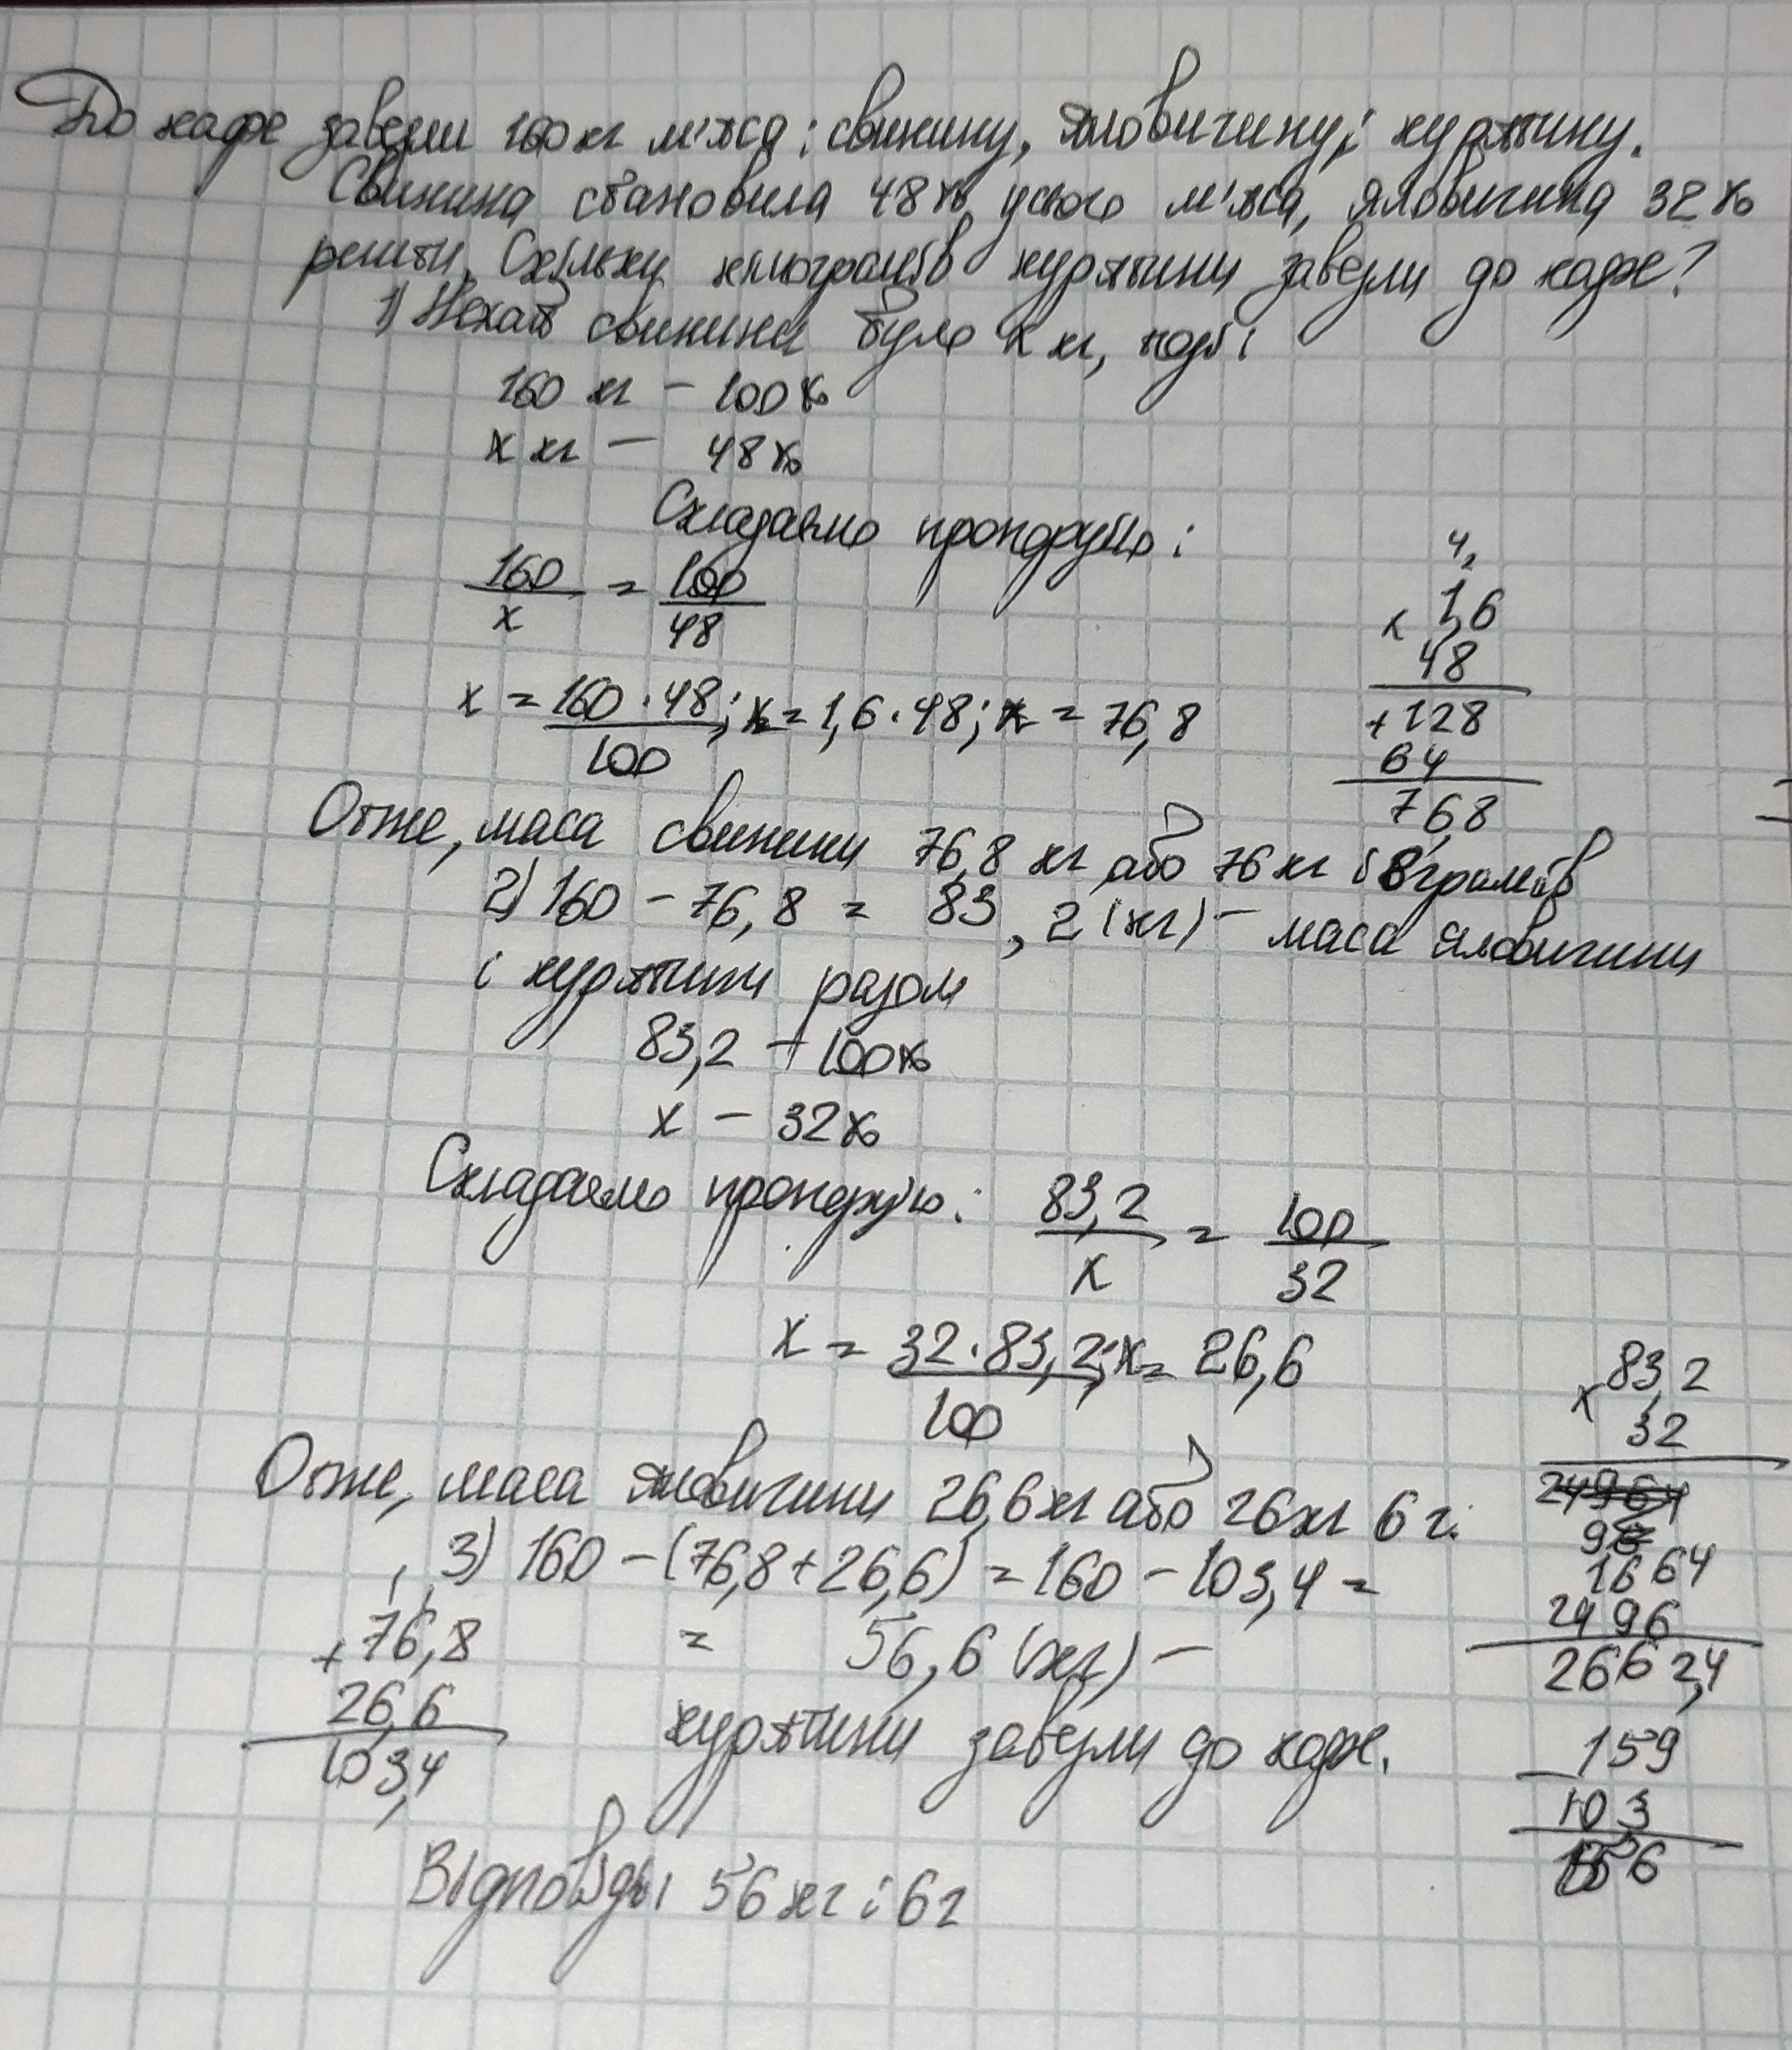 До кафе завезли 160 кг м'яса: свинину, яловичину і курятину.
Свинина становила 48% усього м'яса, яловичина 32%
решти. Скільки кілограмів курятини завезли до кафе?
1) Нехай свинини було x кг, тоді:
160 кг – 100%
x кг – 48%
Складаємо пропорцію:
160/x = 100/48
x = 160 · 48/100; x = 1,6 · 48; x = 76,8
4
× 1,6
48
+ 128
64
76,8
Отже, маса свинини 76,8 кг або 76 кг і 8 грамів
2) 160 – 76,8 = 83,2 (кг) – маса яловичини
і курятини разом
83,2 – 100%
x – 32%
Складаємо пропорцію: 83,2/x = 100/32
x = 32 · 83,2/100; x = 26,6
× 83,2
32
1664
2496
2662,4
Отже, маса яловичини 26,6 кг або 26 кг 6 г.
3) 160 – (76,8 + 26,6) = 160 – 103,4 =
= 56,6 (кг) –
курятини завезли до кафе.
+ 76,8
26,6
103,4
– 159
103
56
Відповідь: 56 кг і 6 г